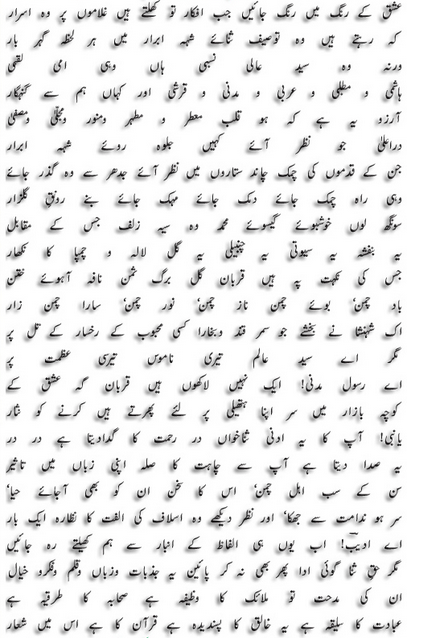 عشق کے رنگ میں رنگ جائیں جب افکار تو کھلتے ہیں غلاموں پر وہ اسرار
کہ رہتے ہیں وہ توصیف ثنائے شہہ ابرار میں ہر لحظہ گہر بار
ورنہ وہ سید عالی نسبی ہاں وہی امی لقبی
ہاشمی و مطلبی و عربی و مدنی و قرشی اور کہاں ہم سے گنہگار
آرزو یہ ہے کہ ہو قلب معطر و مطہر ومنور ومجلّیٰ ومصفیٰ
دراعلیٰ جو نظر آئے کہیں جلوہ روئے شہہ ابرار
جن کے قدموں کی چمک چاند ستاروں میں نظر آئے جدھر سے وہ گذر جائے
وہی راہ چمک جائے دمک جائے مہک جائے بنے رونق گلزار
سونگھ لوں خوشبوئے گیسوئے محمد وہ سیہ زلف جس کے مقابل
یہ بنفشہ یہ سیوتی یہ چنبیلی یہ گل لالہ و چمپا کا نکھار
جس کی نکہت پہ ہیں قربان گل برگ سمن نافہ آہوئے ختن
باد چمن، بوئے چمن ناز چمن، نور چمن، سارا چمن زار
اک شہنشا نے بخشے جو سمر قند وبخارا کسی محبوب کے رخسار کے تل پر
مگر اے سید عالم تیری ناموس تیری عظمت پر
اے رسول مدنی! ایک نہیں لاکھوں ہیں قربان گہ عشق کے
کوچہ بازار میں سر اپنا ہتھیلی پر لئے پھرتے ہیں کرنے کو نثار
یانبی! آپ کا یہ ادنیٰ ثناخواں در رحمت کا گدادیتا ہے در در
یہ صدا دیتا ہے آپ سے چاہت کا صلہ اپنی زباں میں تاثیر
سن کے سب اہل چمن، اس کا سخن ان کو بھی آجائے حیا،
سر ہو ندامت سے جھکا، اور نظر دیکھے وہ اسلاف کی الفت کا نظارہ ایک بار
اے ادیب! اب یوں ہی الفاظ کے انبار سے ہم کھیلتے رہ جائیں
مگر حق ثنا گوئی ادا پھر بھی نہ کر پائیں یہ جذبات وزباں وقلم وفکرو خیال
ان کی مدحت تو ملائک کا وظیفہ ہے صحابہ کا طریقہ ہے
عبادت کا سلیقہ ہے یہ خالق کا پسندیدہ ہے قرآن کا ہے اس میں شعار